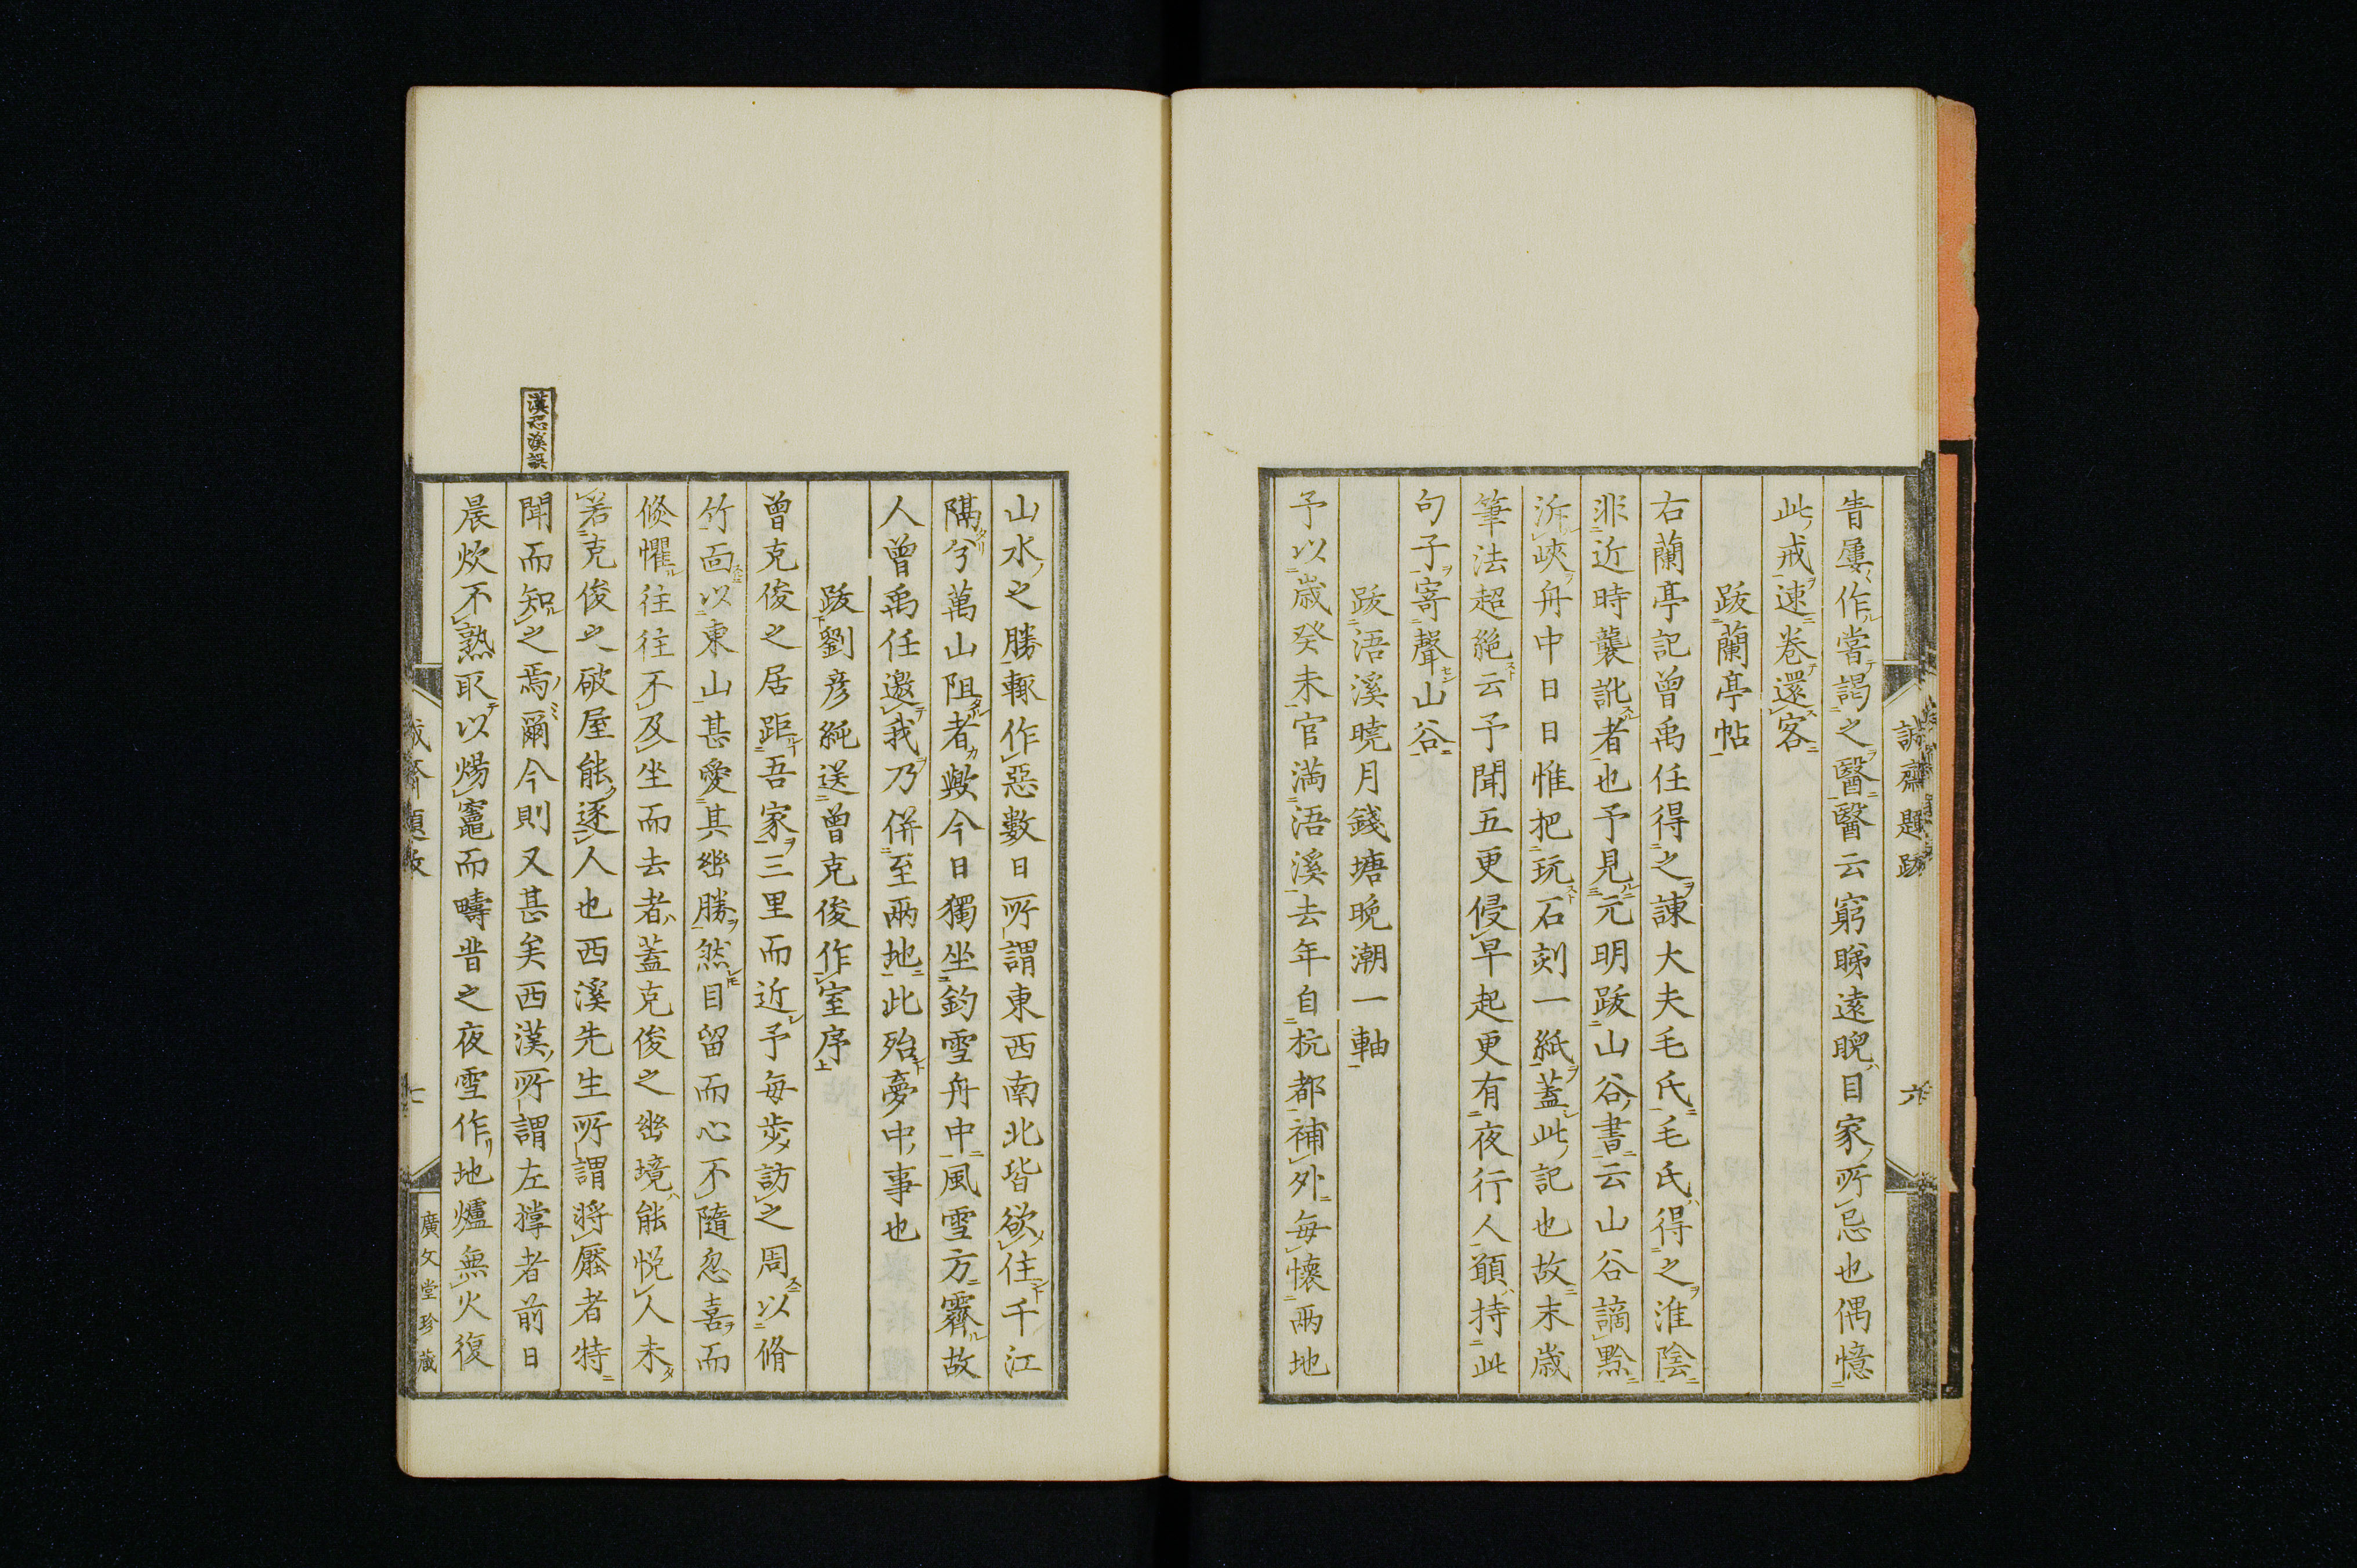 誠齋題跋
六
眚屢作嘗謁之醫醫云窮睇遠睨目家所忌也偶憶
此戒速卷還客
跋蘭亭帖
右蘭亭記曾禹任得之諌大夫毛氏毛氏得之淮陰
非近時襲訛者也予見元明跋山谷書云山谷謫黔
泝峽舟中日日惟把玩石刻一紙蓋此記也故末歲
筆法超絶云予聞五更侵早起更有夜行人顚持此
句子寄聲山谷
跋浯溪曉月錢塘晩潮一軸
予以歲癸未官満浯溪去年自杭都補外毎懷兩地
山水之勝輙作惡數日所謂東西南北皆欲住千江
隔兮萬山阻者歟今日獨坐釣雪舟中風雪方霽故
人曾禹任邀我乃併至兩地此殆夢中事也
跋劉彦純送曾克俊作室序
曾克俊之居距吾家三里而近予毎歩訪之周以脩
竹面以東山甚愛其幽勝然目留而心不隨忽喜而
倐懼往往不及坐而去者蓋克俊之幽境能悦人未
若克俊之破屋能逐人也西溪先生所謂將壓者特
聞而知之焉爾今則又甚矣西漢所謂左撑者前日
晨炊不熟取以煬竈而疇昔之夜雪作地爐無火復
漢恐溪誤
七
廣文堂珍藏